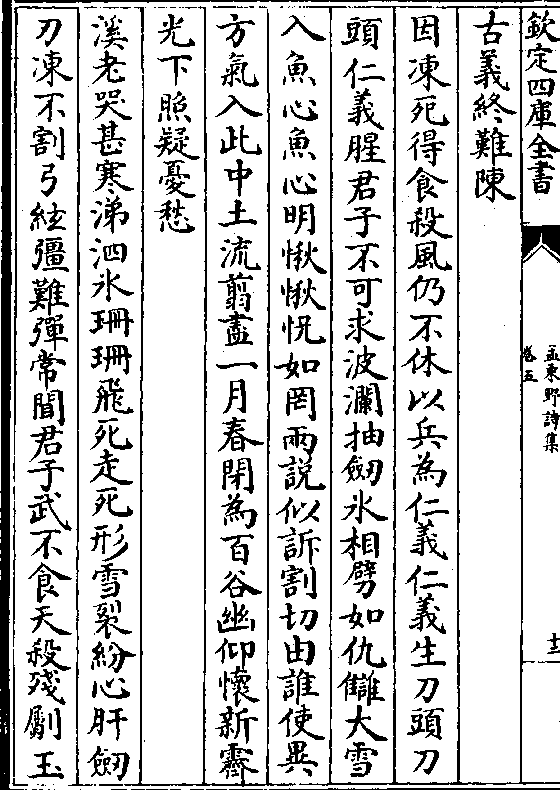 欽定四庫全書
孟東野詩集
卷五
十三
古義終難陳
因凍死得食殺風仍不休以兵為仁義仁義生刀頭刀
頭仁義腥君子不可求波瀾抽劒氷相劈如仇讎大雪
入魚心魚心明愀愀怳如罔兩説似訴割切由誰使異
方氣入此中土流翦盡一月春閉為百谷幽仰懷新霽
光下照疑憂愁
溪老哭甚寒涕泗氷珊珊飛死走死形雪裂紛心肝劒
刃凍不割弓絃彊難彈常聞君子武不食天殺殘劚玉